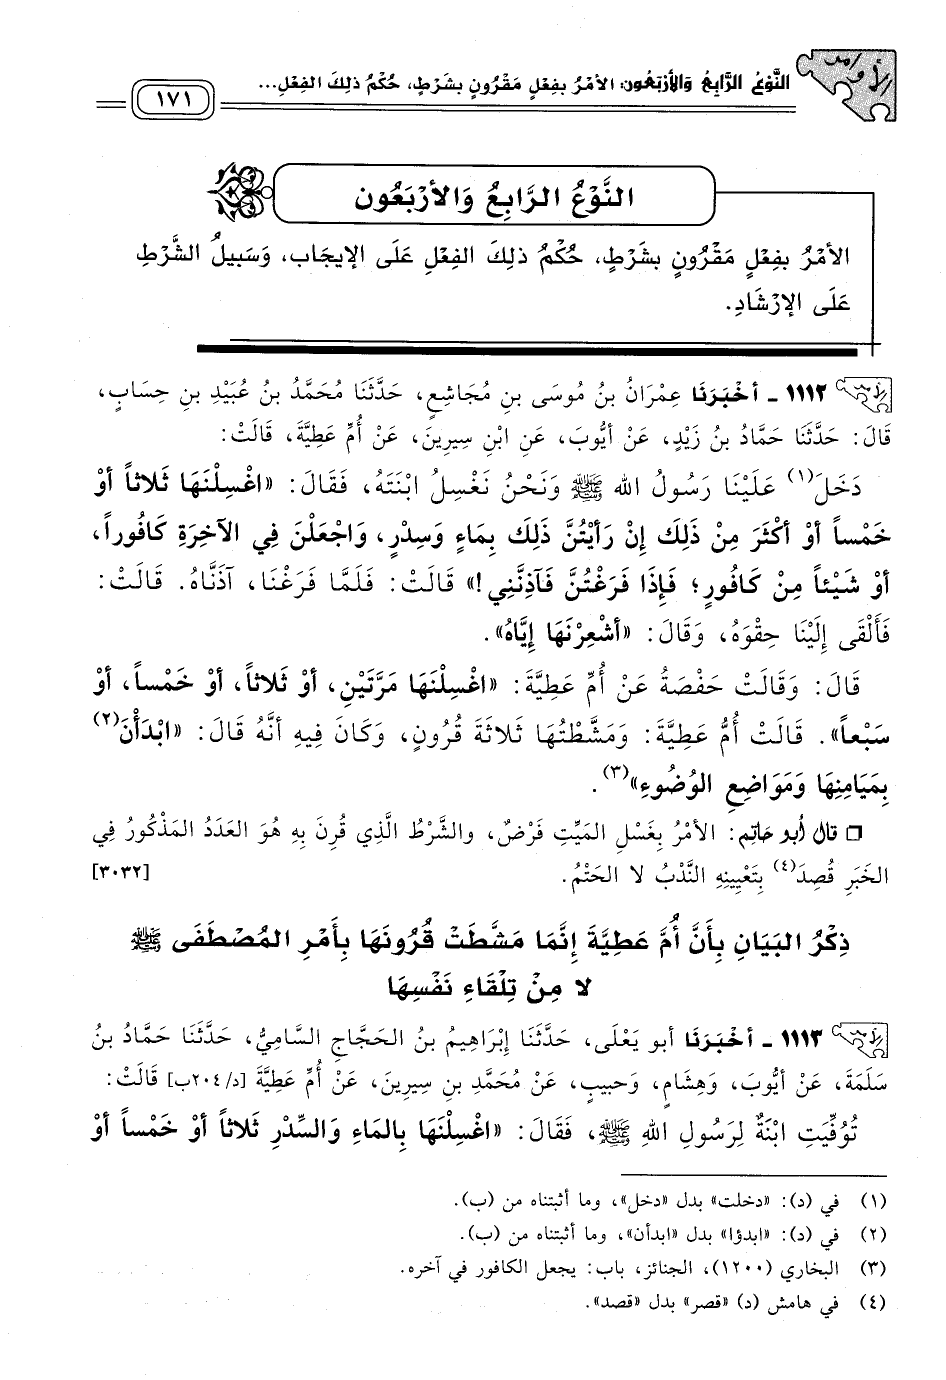 الأوامر
النَّوْعُ الرَّابِعُ وَالأرْبَعُون: الأمْرُ بِفِعْلٍ مَقْرُونٍ بِشَرْطٍ، حُكْمُ ذلِكَ الفِعْلِ...
١٧١
النَّوْعُ الرَّابِعُ وَالأرْبَعُون
الأمْرُ بِفِعْلٍ مَقْرُونٍ بِشَرْطٍ، حُكْمُ ذلِكَ الفِعْلِ عَلَى الإيجَاب، وَسَبِيلُ الشَّرْطِ
عَلَى الإرْشَادِ.
١١١٢ - أخْبَرَنَا عِمْرَانُ بنُ مُوسَى بنِ مُجَاشِعٍ، حَدَّثَنَا مُحَمَّدُ بنُ عُبَيْدِ بنِ حِسَابٍ،
قَالَ: حَدَّثَنَا حَمَّادُ بنُ زَيْدٍ، عَنْ أيُّوبَ، عَنِ ابْنِ سِيرِينَ، عَنْ أُمِّ عَطِيَّةَ، قَالَتْ:
دَخَلَ(١) عَلَيْنَا رَسُولُ الله ﷺ وَنَحْنُ نَغْسِلُ ابْنَتَهُ، فَقَالَ: «اغْسِلْنَهَا ثَلاثاً أوْ
خَمْساً أوْ أكْثَرَ مِنْ ذَلِكَ إنْ رَأيْتُنَّ ذَلِكَ بِمَاءٍ وَسِدْرٍ، وَاجْعَلْنَ فِي الآخِرَةِ كَافُوراً،
أوْ شَيْئاً مِنْ كَافُورٍ؛ فَإذَا فَرَغْتُنَّ فَآذِنَّنِي!» قَالَتْ: فَلَمَّا فَرَغْنَا، آذَنَّاهُ. قَالَتْ:
فَألْقَى إلَيْنَا حِقْوَهُ، وَقَالَ: «أشْعِرْنَهَا إيَّاهُ».
قَالَ: وَقَالَتْ حَفْصَةُ عَنْ أُمِّ عَطِيَّةَ: «اغْسِلْنَهَا مَرَّتَيْنِ، أوْ ثَلاثاً، أوْ خَمْساً، أوْ
سَبْعاً». قَالَتْ أُمُّ عَطِيَّةَ: وَمَشَّطْتُهَا ثَلاثَةَ قُرُونٍ، وَكَانَ فِيهِ أنَّهُ قَالَ: «ابْدَأْنَ(٢)
بِمَيَامِنِهَا وَمَوَاضِعِ الوُضُوءِ»(٣).
□ قال أبو حَاتِم: الأمْرُ بِغَسْلِ المَيِّتِ فَرْضٌ، والشَّرْطُ الَّذِي قُرِنَ بِهِ هُوَ العَدَدُ المَذْكُورُ فِي
الخَبَرِ قُصِدَ(٤) بِتَعْيِينِهِ النَّدْبُ لا الحَتْمُ. [٣٠٣٢]
ذِكْرُ البَيَانِ بِأَنَّ أُمَّ عَطِيَّةَ إنَّمَا مَشَّطَتْ قُرُونَهَا بِأَمْرِ المُصْطَفَى ﷺ
لا مِنْ تِلْقَاءِ نَفْسِهَا
١١١٣ - أخْبَرَنَا أبو يَعْلَى، حَدَّثَنَا إبْرَاهِيمُ بنُ الحَجَّاجِ السَّامِيُّ، حَدَّثَنَا حَمَّادُ بنُ
سَلَمَةَ، عَنْ أيُّوبَ، وَهِشَامٍ، وَحَبِيبٍ، عَنْ مُحَمَّدِ بنِ سِيرِينَ، عَنْ أُمِّ عَطِيَّةَ [د/٢٠٤ب] قَالَتْ:
تُوُفِّيَتِ ابْنَةٌ لِرَسُولِ اللهِ ﷺ، فَقَالَ: «اغْسِلْنَهَا بِالمَاءِ وَالسِّدْرِ ثَلاثاً أوْ خَمْساً أوْ
(١) في (د): «دخلت» بدل «دخل»، وما أثبتناه من (ب).
(٢) في (د): «ابدؤا» بدل «ابدأن»، وما أثبتناه من (ب).
(٣) البخاري (١٢٠٠)، الجنائز، باب: يجعل الكافور في آخره.
(٤) في هامش (د) «قصر» بدل «قصد».